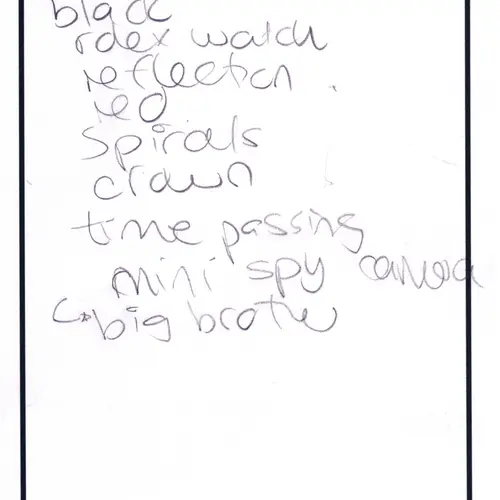 black
rolex watch
reflection
red
spirals
crown
time passing
mini spy camera
big brother